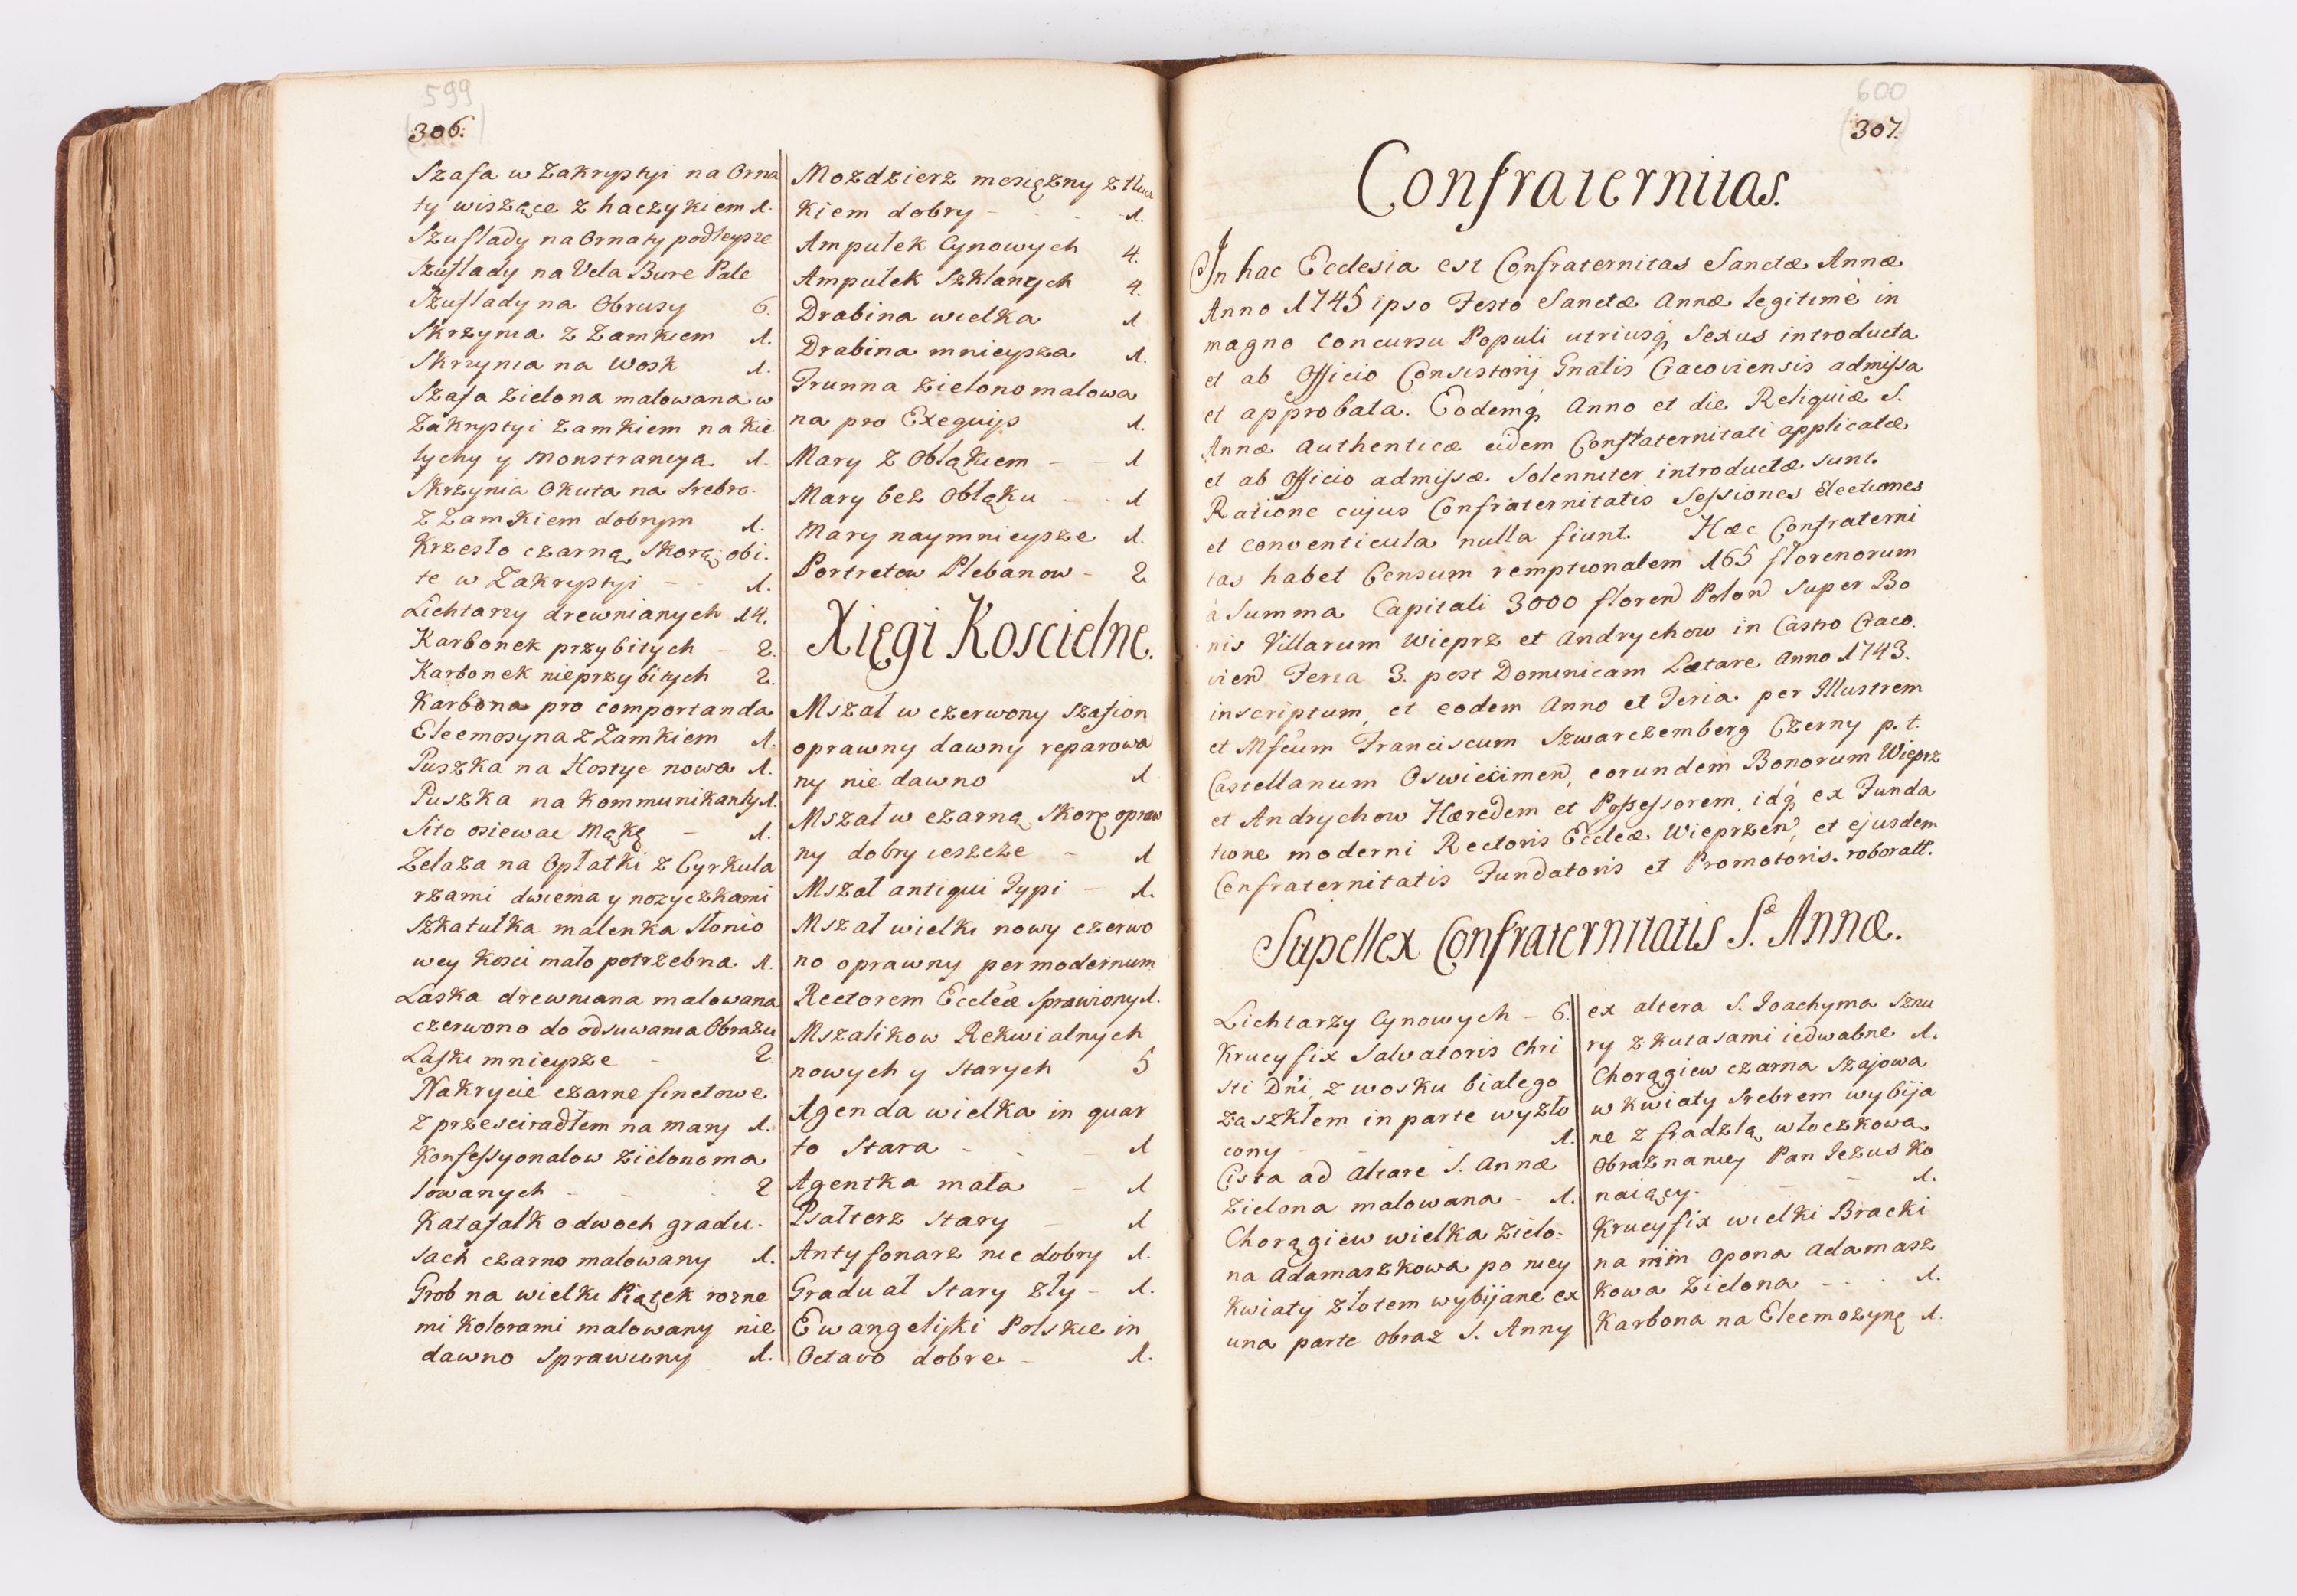 599
306.
Szafa w Zakrystyi na Orna
ty wiszące z haczykiem 1.
Szuflady na Ornaty podleysze
Szuflady na Vela Burse Pale
Szuflady na Obrusy 6.
Skrzynia z Zamkiem 1.
Skrzynia na Wosk 1.
Szafa Zielona malowana w
Zakrystyi Zamkiem na Kie
lychy y Monstrancya 1.
Skrzynia Okuta na Srebro
z Zamkiem dobrym 1.
Krzesło czarną Skorą obi.
te w Zakrystyi - - 1.
Lichtarzy drewnianych 14.
Karbonek przybitych - 2.
Karbonek nieprzybitych 2.
Karbona pro comportanda
Eleemosyna z Zamkiem 1.
Puszka na Hostye nowa 1.
Puszka na Kommunikanty 1.
Sito osiewac Mąkę - 1.
Zelaza na Opłatki z Cyrkula
rzami dwiema y nozyczkami
Szkatułka malenka Słonio
wey Kosci mało potrzebna 1.
Laska drewniana malowana
czerwono do odsuwania Obrazu
Laski mnieysze - 2.
Nakrycie czarne
z przescieradłem na mary 1.
Konfessyonalow zielono ma
lowanych - - 2
Katafalk o dwoch gradu.
sach czarno malowany 1.
Grob na wielki Piątek rozne
mi Kolorami malowany nie
dawno Sprawiony 1.
Mozdzierz mosiężny z tłucz
kiem dobry - - - 1.
Ampułek Cynowych 4.
Ampułek Szklanych 4.
Drabina wielka 1
Drabina mnieysza 1.
Trunna zielono malowa
na pro Exequijs 1.
Mary z Obłąkiem - - 1
Mary bez Obłąku - - 1
Mary naymnieysze 1.
Portretow Plebanow - 2
Xięgi Koscielne.
Mszał w czerwony szafion
oprawny dawny reparowa
ny nie dawno 1
Mszał w czarną Skorę opraw
ny dobry ieszcze - 1
Mszał antiqui Typi - 1.
Mszał wielki nowy czerwo
no oprawny per modernum
Rectorem Eccleæ Sprawiony 1.
Mszalikow Rekwialnych
nowych y Starych 5
Agenda wielka in quar
to Stara - - - 1
Agentka mała - 1
Psałterz Stary - 1
Antyfonarz nie dobry 1.
Graduał Stary zły - 1.
Ewangelijki Polskie in
Octavo dobre - 1.
600
307.
Confraternitas.
In hac Ecclesia est Confraternitas Sanctæ Annæ
Anno 1745 ipso Festo Sanctæ Annæ legitimè in
magno concursu Populi utriusq; Sexus introducta
et ab Officio Consistorij Gnalis Cracoviensis admissa
et approbata. Eodemq; Anno et die Reliquiæ S.
Annæ Authenticæ eidem Confraternitati applicatæ
et ab Officio admissæ Solenniter introductæ sunt.
Ratione cujus Confraternitatis Sessiones Electiones
et conventicula nulla fiunt. Hæc Confraterni
tas habet Censum remptionalem 165 florenorum
à Summa Capitali 3000 floren Polon super Bo
nis Villarum Wieprz et Andrychow in Castro Craco.
vien Feria 3. post Dominicam Lætare Anno 1743.
inscriptum, et eodem Anno et Feria per Illustrem
et Mfcum Franciscum Szwarczemberg Czerny p. t.
Castellanum Oswiecimen, eorundem Bonorum Wieprz
et Andrychow Hæredem et Possessorem, idq; ex Funda
tione moderni Rectoris Eccleæ Wieprzen, et ejusdem
Confraternitatis Fundatoris et Promotoris. roboratt.
Supellex Confraternitatis S.æ Annæ.
Lichtarzy Cynowych - 6.
Krucyfix Salvatoris Chri
sti Dni, z wosku białego
za szkłem in parte wyzło
cony - - 1.
Cista ad Altare S. Annæ
Zielona malowana - 1.
Chorągiew wielka zielo:
na Adamaszkowa po niey
Kwiaty złotem wybijane ex
una parte Obraz S. Anny
ex altera S. Joachyma Sznu
ry z kutasami iedwabne 1.
Chorągiew czarna Szajowa
w Kwiaty Srebrem wybija
ne z fradzlą włoczkowa
Obraz na niey Pan Jezus Ko
naiący. - - 1.
Krucyfix wielki Bracki
na nim Opona Adamasz
kowa Zielona - - - 1.
Karbona na Eleemozynę 1.